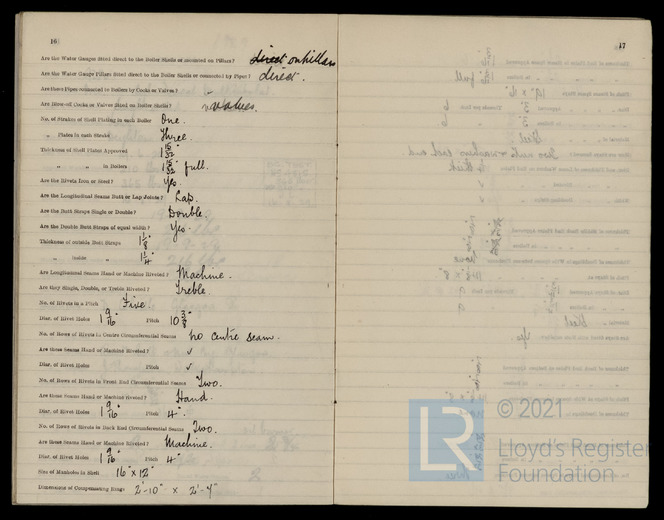 16
Are the Water Gauges fitted direct to the Boiler Shells or mounted on Pillars? direct on pillars
Are the Water Gauge Pillars fitted direct to the Boiler Shells or connected by Pipes? direct.
Are these Pipes connected to Boilers by Cocks or Valves?
Are Blow-off Cocks or Valves fitted on Boiler Shells? valves.
No. of Strakes of Shell Plating in each Boiler One.
„ Plates in each Strake Three.
Thickness of Shell Plates Approved 1 15/32"
„ „ in Boilers 1 15/32" full.
Are the Rivets Iron or Steel? Yes
Are the Longitudinal Seams Butt or Lap Joints? Lap.
Are the Butt Straps Single or Double? Double.
Are the Double Butt Straps of equal width? Yes.
Thickness of outside Butt Straps 1 1/8"
„ inside „ 1 1/4"
Are Longitudinal Seams Hand or Machine Riveted? Machine.
Are they Single, Double, or Treble Riveted? Treble
No. of Rivets in a Pitch Five
Diar. of Rivet Holes 1 9/16" Pitch 10 3/8"
No. of Rows of Rivets in Centre Circumferential Seams no centre seams.
Are these Seams Hand or Machine Riveted? ✓
Diar. of Rivet Holes Pitch ✓
No. of Rows of Rivets in Front End Circumferential Seams Two.
Are these Seams Hand or Machine Riveted? Hand.
Diar. of Rivet Holes 1 9/16" Pitch 4"
No. of Rows of Rivets in Back End Circumferential Seams Two.
Are these Seams Hand or Machine Riveted? Machine.
Diar. of Rivet Holes 1 9/16" Pitch 4"
Size of Manholes in Shell 16" x 12"
Dimensions of Compensating Rings 2'-10" x 2'-4"
17
LR
© 2021
Lloyd's Register
Foundation